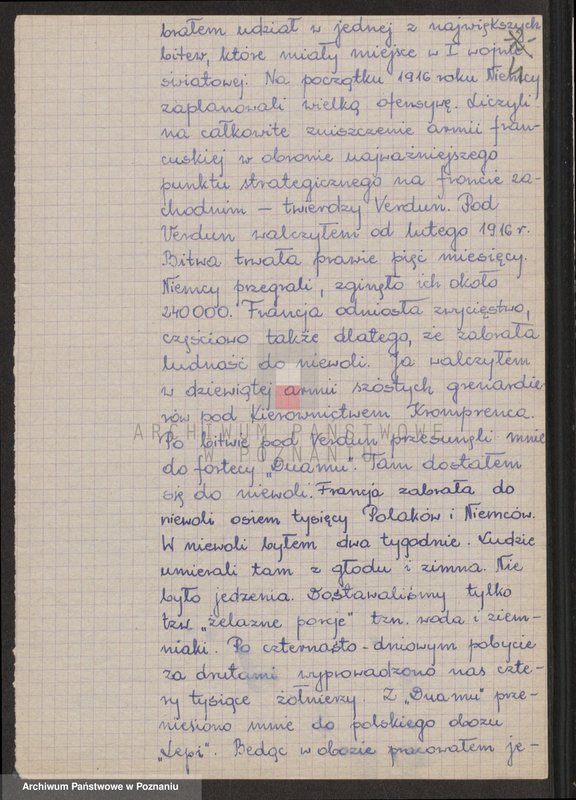 brałem udział w jednej z największych
bitew, które miały miejsce w I wojnie
światowej. Na początku 1916 roku Niemcy
zaplanowali wielką ofensywę. Liczyli
na całkowite zniszczenie armii fran-
cuskiej w obronie najważniejszego
punktu strategicznego na froncie za-
chodnim — twierdzy Verdun. Pod
Verdun walczyłem od lutego 1916 r.
Bitwa trwała prawie pięć miesięcy.
Niemcy przegrali, zginęło ich około
240000. Francja odniosła zwycięstwo,
częściowo także dlatego, że zabrała
ludność do niewoli. Ja walczyłem
w dziewiątej armii szóstych grenardie-
rów pod kierownictwem Kromprenca.
Po bitwie pod Verdun przesunęli mnie
do fortecy „Duamu". Tam dostałem
się do niewoli. Francja zabrała do
niewoli osiem tysięcy Polaków i Niemców.
W niewoli byłem dwa tygodnie. Ludzie
umierali tam z głodu i zimna. Nie
było jedzenia. Dostawaliśmy tylko
tzw „żelazne porcje" tzn. woda i ziem-
niaki. Po czternasto-dniowym pobycie
za drutami wyprowadzono nas czte-
ry tysiące żołnierzy. Z „Duamu" prze-
niesiono mnie do polskiego obozu
„Lepi". Będąc w obozie pracowałem je-
ARCHIWUM PAŃSTWOWE
W POZNANIU
Archiwum Państwowe w Poznaniu